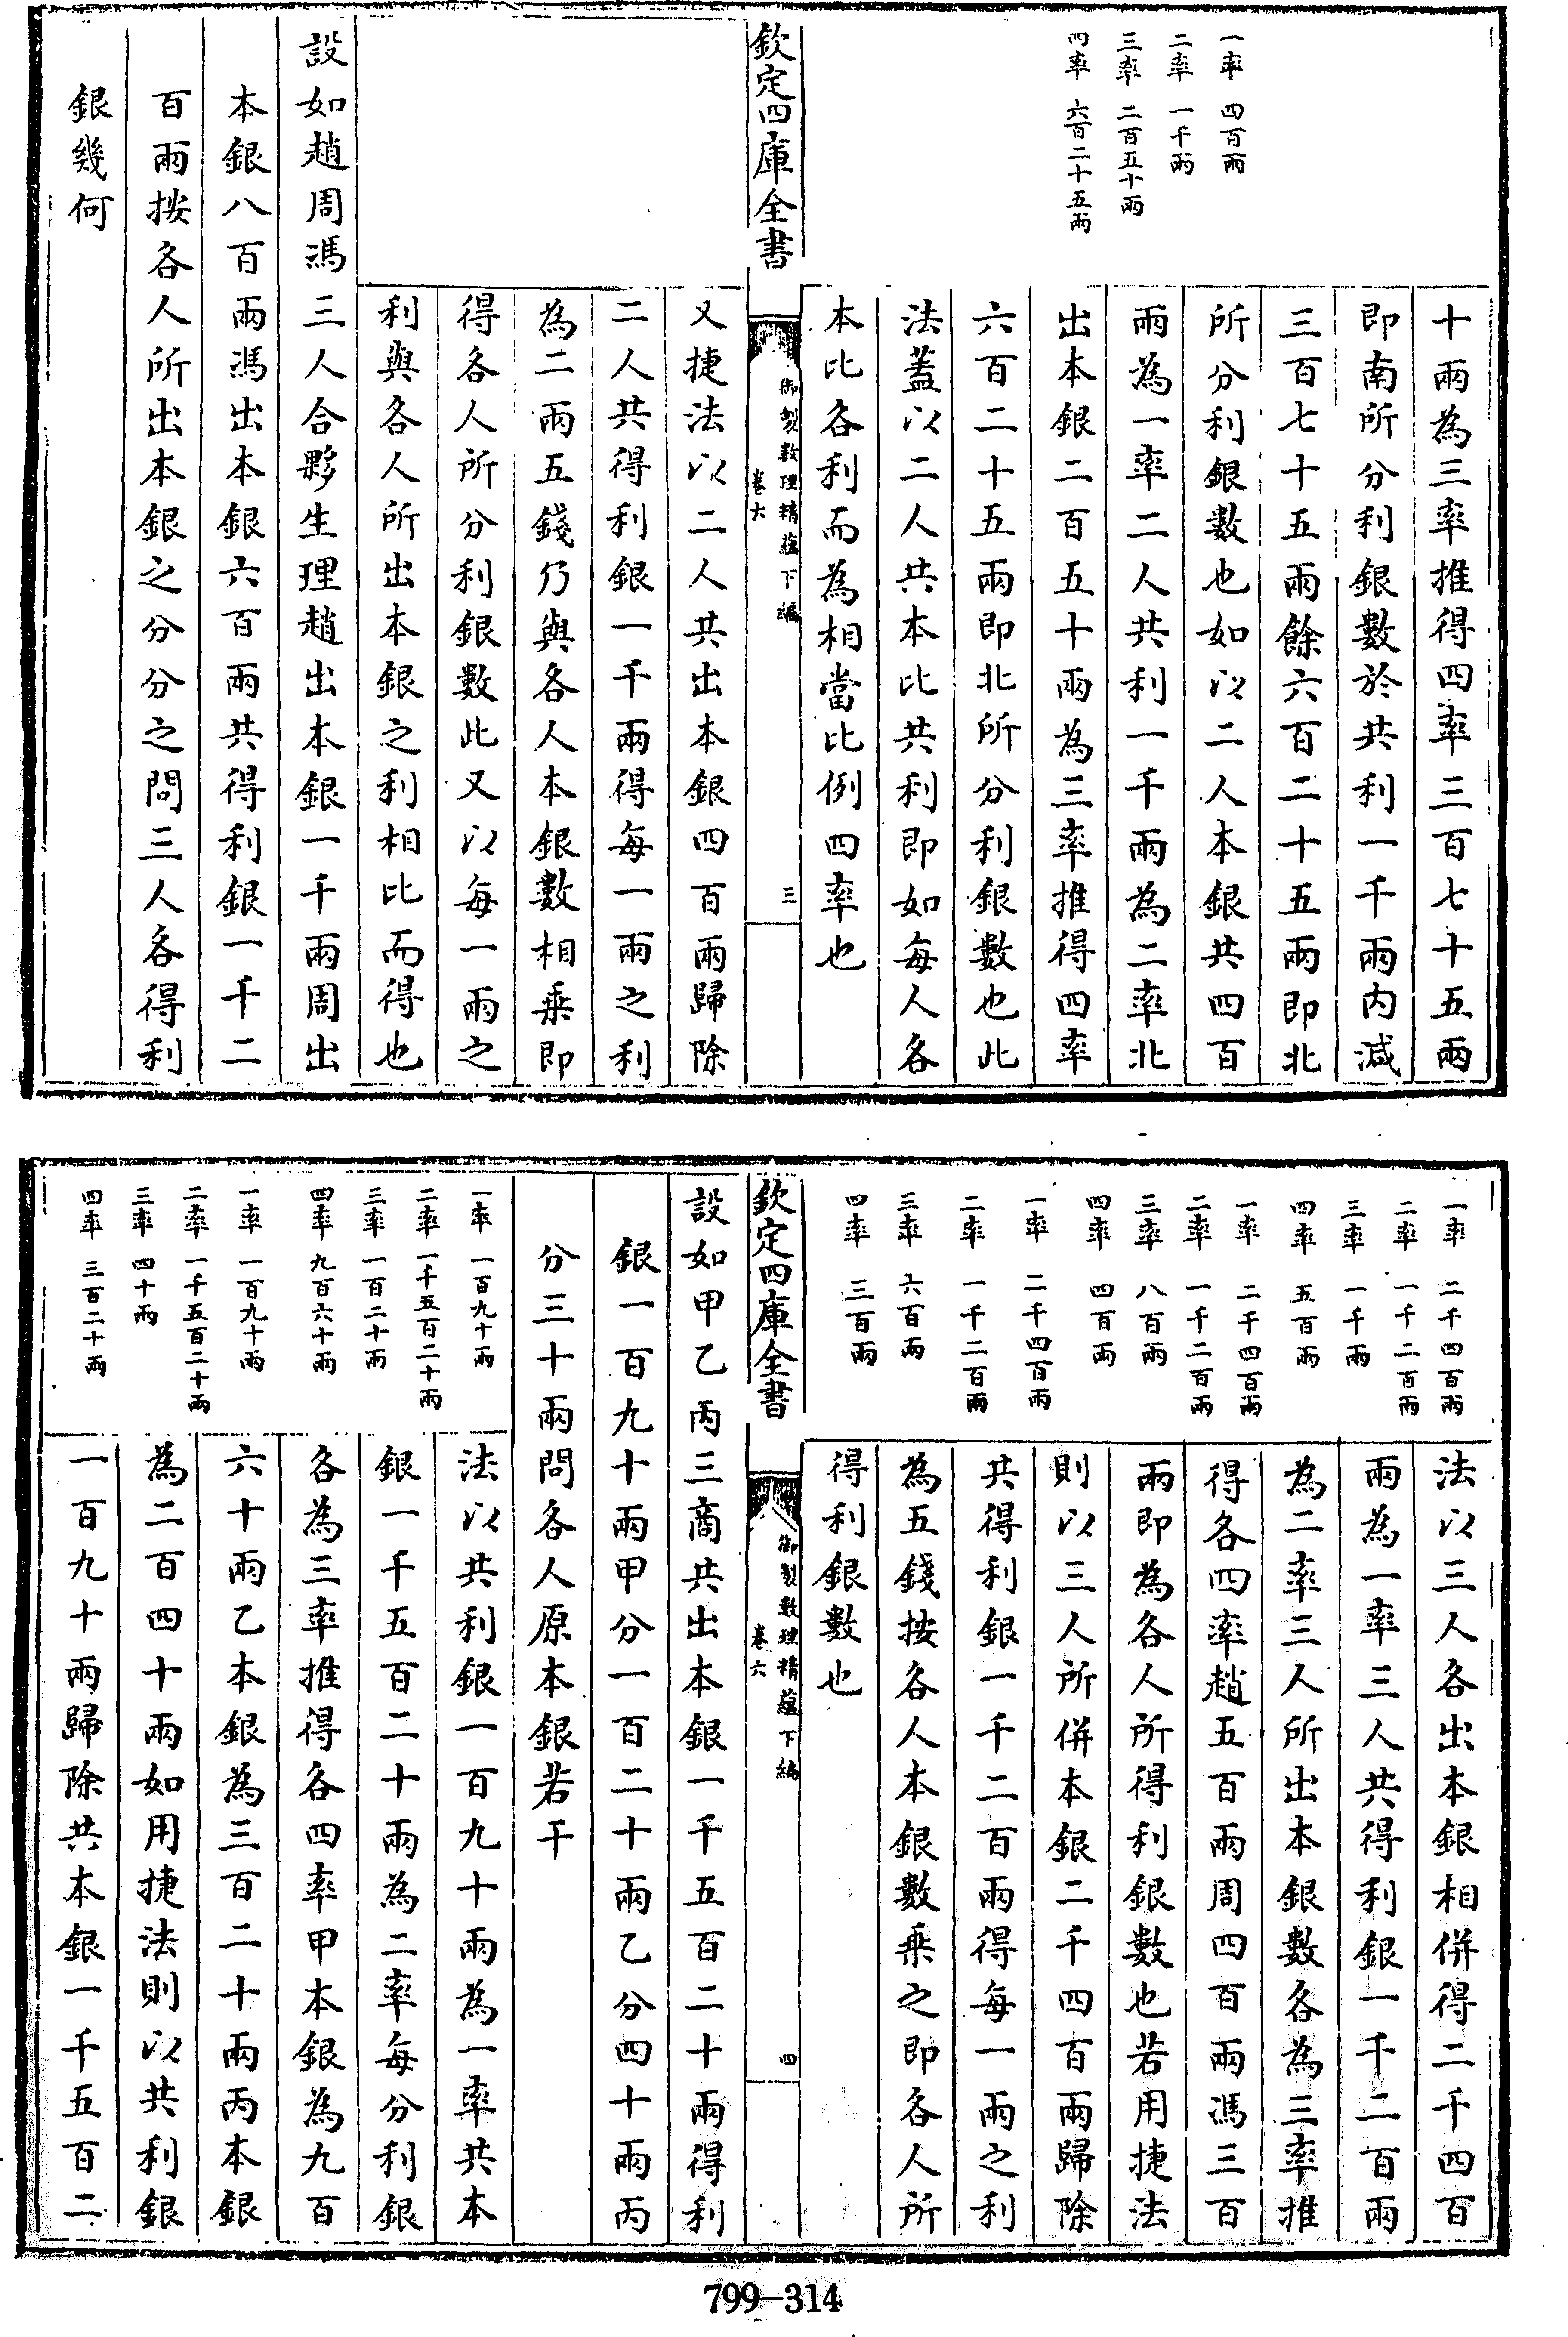 一率　四百兩
二率　一千兩
三率　二百五十兩
四率　六百二十五兩
十兩為三率推得四率三百七十五兩
即南所分利銀數於共利一千兩内減
三百七十五兩餘六百二十五兩即北
所分利銀數也如以二人本銀共四百
兩為一率二人共利一千兩為二率北
出本銀二百五十兩為三率推得四率
六百二十五兩即北所分利銀數也此
法蓋以二人共本比共利即如每人各
本比各利而為相當比例四率也
欽定四庫全書
御製數理精蘊下編
卷六
三
又捷法以二人共出本銀四百兩歸除
二人共得利銀一千兩得每一兩之利
為二兩五錢乃與各人本銀數相乗即
得各人所分利銀數此又以每一兩之
利與各人所出本銀之利相比而得也
設如趙周馮三人合夥生理趙出本銀一千兩周出
本銀八百兩馮出本銀六百兩共得利銀一千二
百兩按各人所出本銀之分分之問三人各得利
銀幾何
一率　二千四百兩
二率　一千二百兩
三率　一千兩
四率　五百兩
一率　二千四百兩
二率　一千二百兩
三率　八百兩
四率　四百兩
一率　二千四百兩
二率　一千二百兩
三率　六百兩
四率　三百兩
法以三人各出本銀相併得二千四百
兩為一率三人共得利銀一千二百兩
為二率三人所出本銀數各為三率推
得各四率趙五百兩周四百兩馮三百
兩即為各人所得利銀數也若用捷法
則以三人所併本銀二千四百兩歸除
共得利銀一千二百兩得每一兩之利
為五錢按各人本銀數乗之即各人所
得利銀數也
欽定四庫全書
御製數理精蘊下編
卷六
四
設如甲乙丙三商共出本銀一千五百二十兩得利
銀一百九十兩甲分一百二十兩乙分四十兩丙
分三十兩問各人原本銀若干
一率　一百九十兩
二率　一千五百二十兩
三率　一百二十兩
四率　九百六十兩
一率　一百九十兩
二率　一千五百二十兩
三率　四十兩
四率　三百二十兩
法以共利銀一百九十兩為一率共本
銀一千五百二十兩為二率每分利銀
各為三率推得各四率甲本銀為九百
六十兩乙本銀為三百二十兩丙本銀
為二百四十兩如用捷法則以共利銀
一百九十兩歸除共本銀一千五百二
799-314